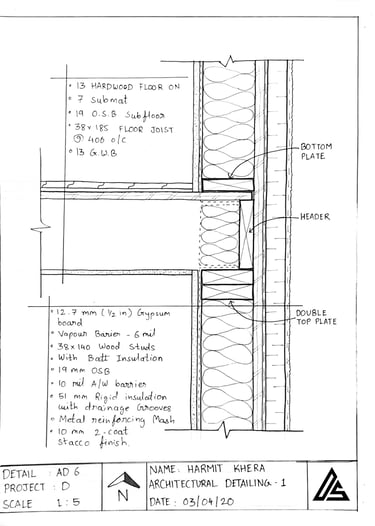 • 13 HARDWOOD FLOOR ON
• 7 Submat
• 19 O.S.B Subfloor
• 38x185 FLOOR JOIST
@ 406 o/c
• 13 G.W.B
BOTTOM
PLATE
HEADER
DOUBLE
TOP PLATE
• 12.7 mm (1/2 in) Gypsum
board
• Vapour Barier - 6 mil
• 38x140 Wood Studs
• With Batt Insulation
• 19 mm OSB
• 10 mil A/W barrier
• 51 mm Rigid insulation
with drainage Grooves
• Metal reinforcing Mash
• 10 mm 2-coat
stacco finish.
DETAIL : AD 6
PROJECT : D
SCALE 1:5
N
NAME: HARMIT KHERA
ARCHITECTURAL DETAILING - 1
DATE: 03/04/20